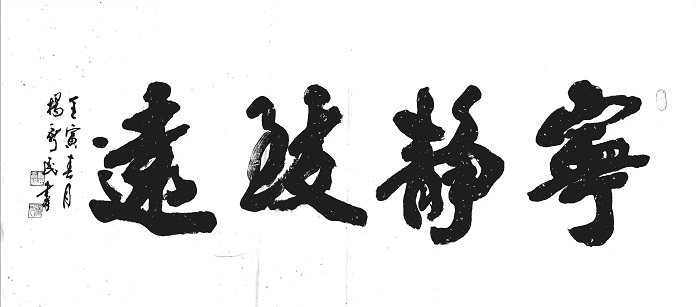 寧靜致遠
壬寅春月
楊新民書